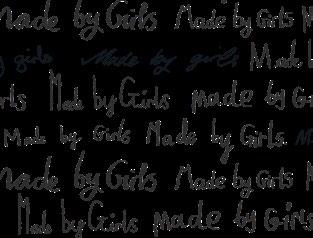 Made by Girls Made by Girls
by girls Made by girls Made
Made by Girls made by
Made by Girls Made by Girls
Made by Girls Made by Girls
Made by Girls made by Girls